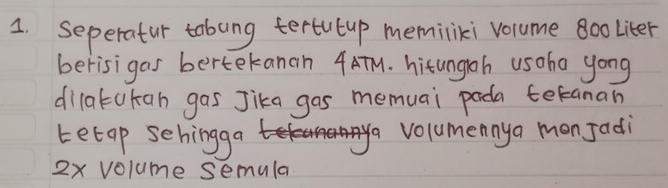 1. Seperatur tabung tertutup memiliki volume 800 Liter
berisi gas bertekanan 4 ATM. hitunglah usaha yang
dilakukan gas Jika gas memuai pada tekanan
tetap sehingga tekanannya volumennya menjadi
2x volume semula